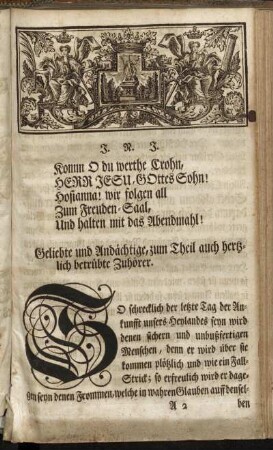 J. N. J.
Komm O du werthe Crohn,
HERR JESU, GOttes Sohn!
Hosianna! wir folgen all
Zum Freuden-Saal,
Und halten mit das Abendmahl!
Geliebte und Andächtige, zum Theil auch hertz-
lich betrübte Zuhörer.
SO schrecklich der letzte Tag der An-
kunfft unsers Heylandes seyn wird
denen sichern und unbußfertigen
Menschen, denn er wird über sie
kommen plötzlich und wie ein Fall-
Strick; so erfreulich wird er dage-
gen seyn denen Frommen, welche in wahren Glauben auff densel-
A 2 ben